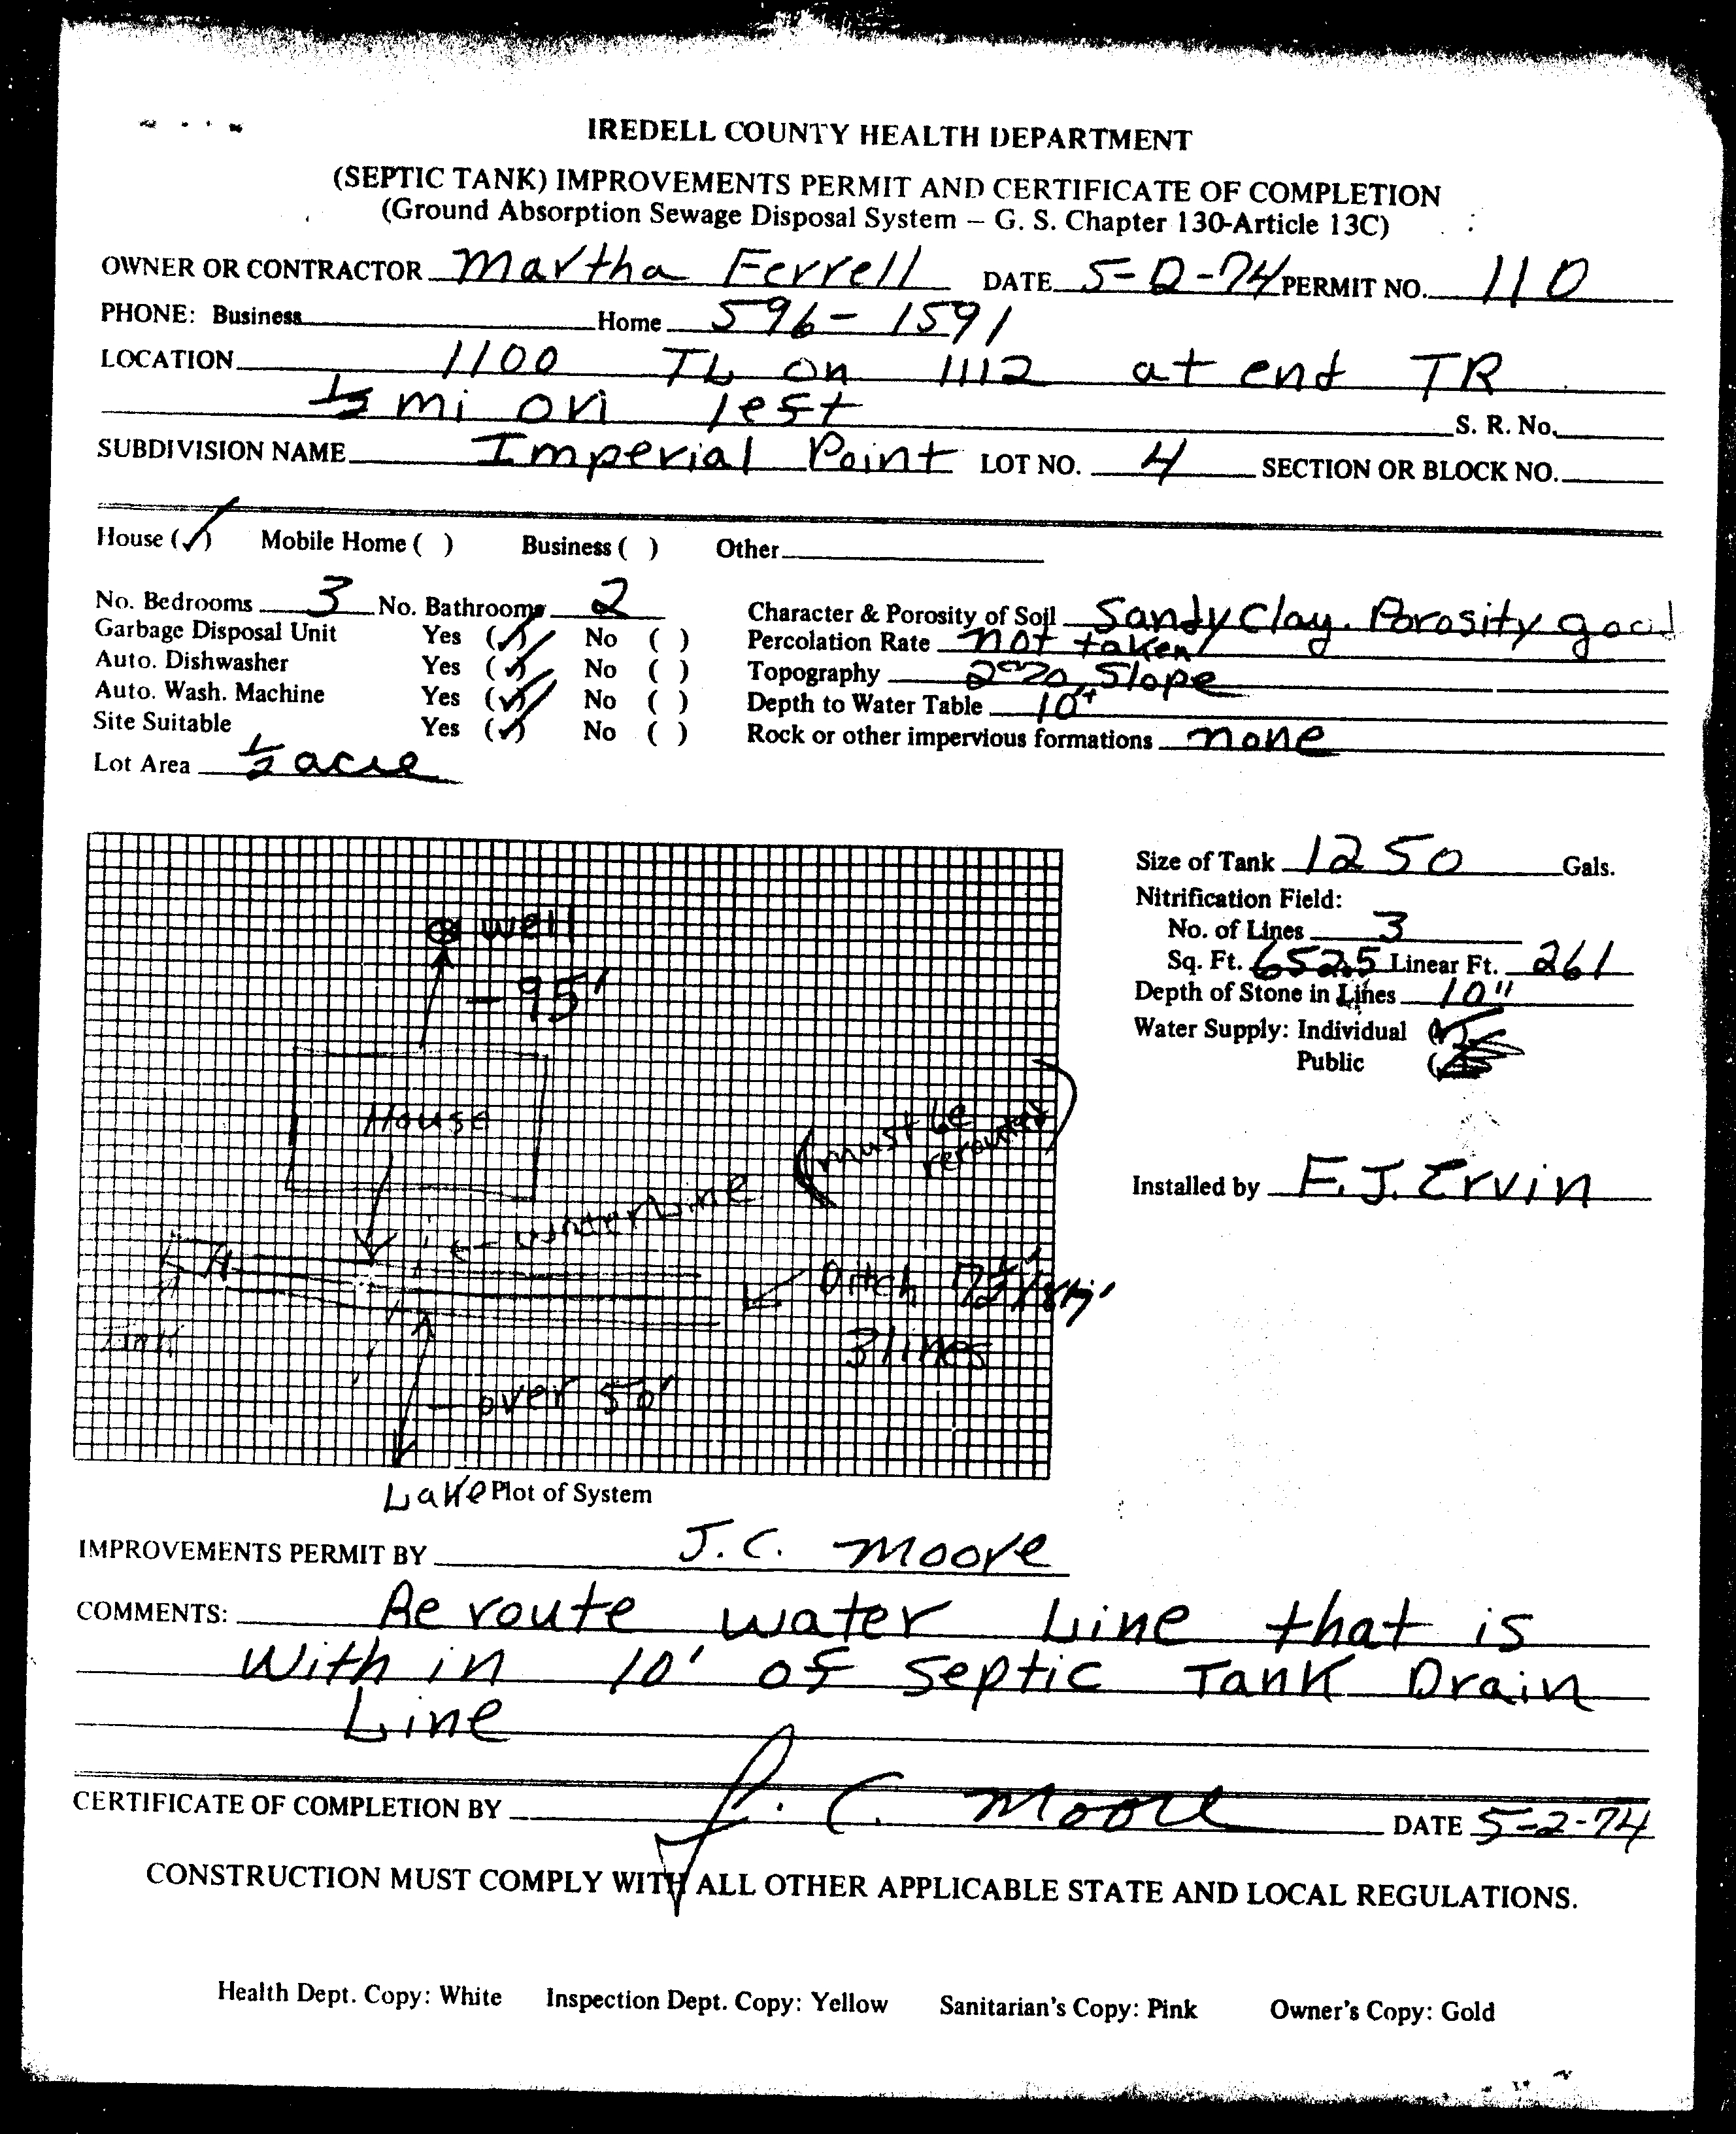 IREDELL COUNTY HEALTH DEPARTMENT
(SEPTIC TANK) IMPROVEMENTS PERMIT AND CERTIFICATE OF COMPLETION
(Ground Absorption Sewage Disposal System – G. S. Chapter 130-Article 13C)
OWNER OR CONTRACTOR Martha Ferrell DATE 5-2-74 PERMIT NO. 110
PHONE: Business Home 596-1591
LOCATION 1100 TL on 1112 at end TR
1/2 mi on left S. R. No.
SUBDIVISION NAME Imperial Point LOT NO. 4 SECTION OR BLOCK NO.
House (✓) Mobile Home ( ) Business ( ) Other
No. Bedrooms 3 No. Bathrooms 2
Garbage Disposal Unit Yes (✓) No ( )
Auto. Dishwasher Yes (✓) No ( )
Auto. Wash. Machine Yes (✓) No ( )
Site Suitable Yes (✓) No ( )
Lot Area 1/2 acre
Character & Porosity of Soil Sandy Clay. Porosity good
Percolation Rate not taken
Topography Slope
Depth to Water Table 10'+
Rock or other impervious formations none
well
- 95'
House
(must be
rerouted)
← - waterline
Ditch
3 lines
Tank
- over 50'
Lake Plot of System
Size of Tank 1250 Gals.
Nitrification Field:
No. of Lines 3
Sq. Ft. 652.5 Linear Ft. 261
Depth of Stone in Lines 10"
Water Supply: Individual (✓)
Public ( )
Installed by F. J. Ervin
IMPROVEMENTS PERMIT BY J. C. Moore
COMMENTS: Re route water Line that is
With in 10' of septic Tank Drain
Line
CERTIFICATE OF COMPLETION BY J. C. Moore DATE 5-2-74
CONSTRUCTION MUST COMPLY WITH ALL OTHER APPLICABLE STATE AND LOCAL REGULATIONS.
Health Dept. Copy: White Inspection Dept. Copy: Yellow Sanitarian's Copy: Pink Owner's Copy: Gold